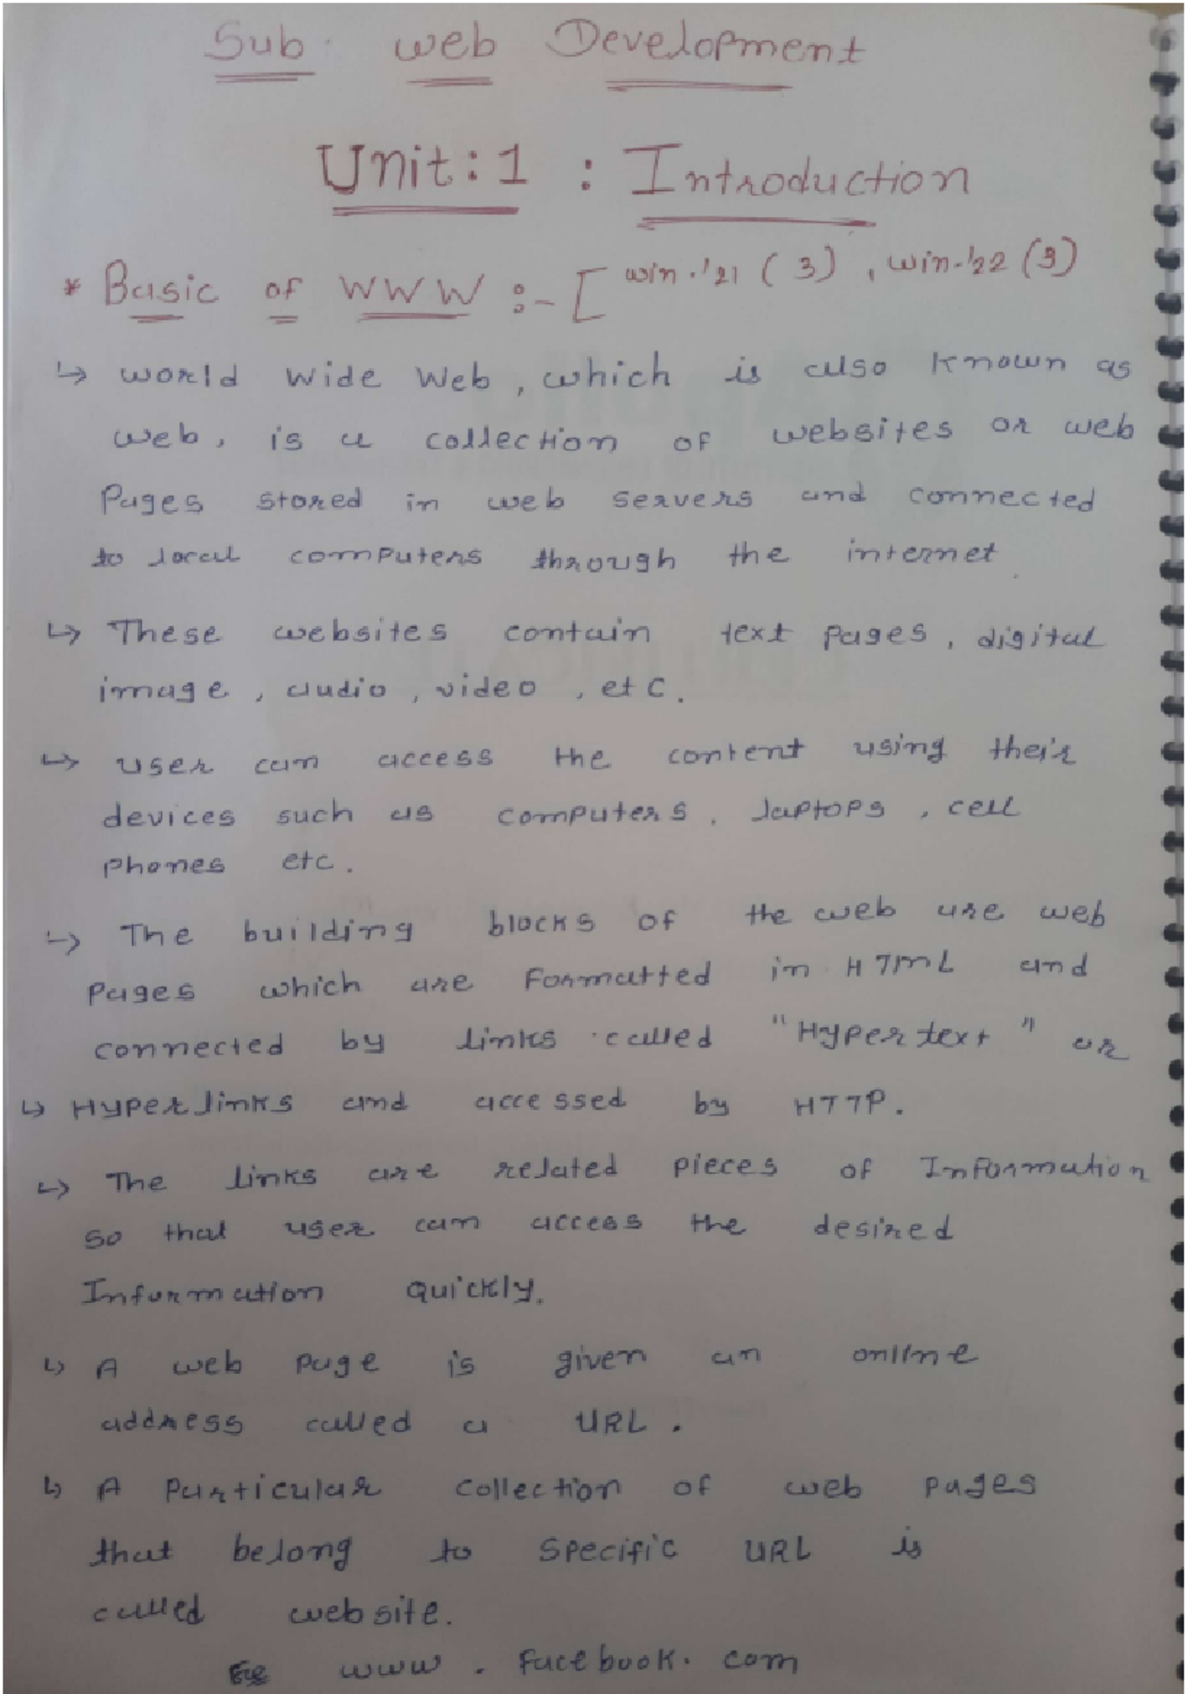 Sub. web Development
Unit:1 : Introduction
* Basic of WWW :- [ win.'21 (3), win-'22 (3)
↳ world wide web, which is also known as
web, is a collection of websites or web
Pages stored in web servers and connected
to local computers through the internet.
↳ These websites contain text pages, digital
image, audio, video, etc.
↳ user can access the content using their
devices such as computers, laptops, cell
phones etc.
↳ The building blocks of the web are web
pages which are formatted in HTML and
connected by links called "Hypertext" or
↳ Hyperlinks and accessed by HTTP.
↳ The links are related pieces of Information
so that user can access the desired
Information quickly.
↳ A web page is given an online
address called a URL.
↳ A Particular collection of web pages
that belong to specific URL is
called website.
www.facebook.com